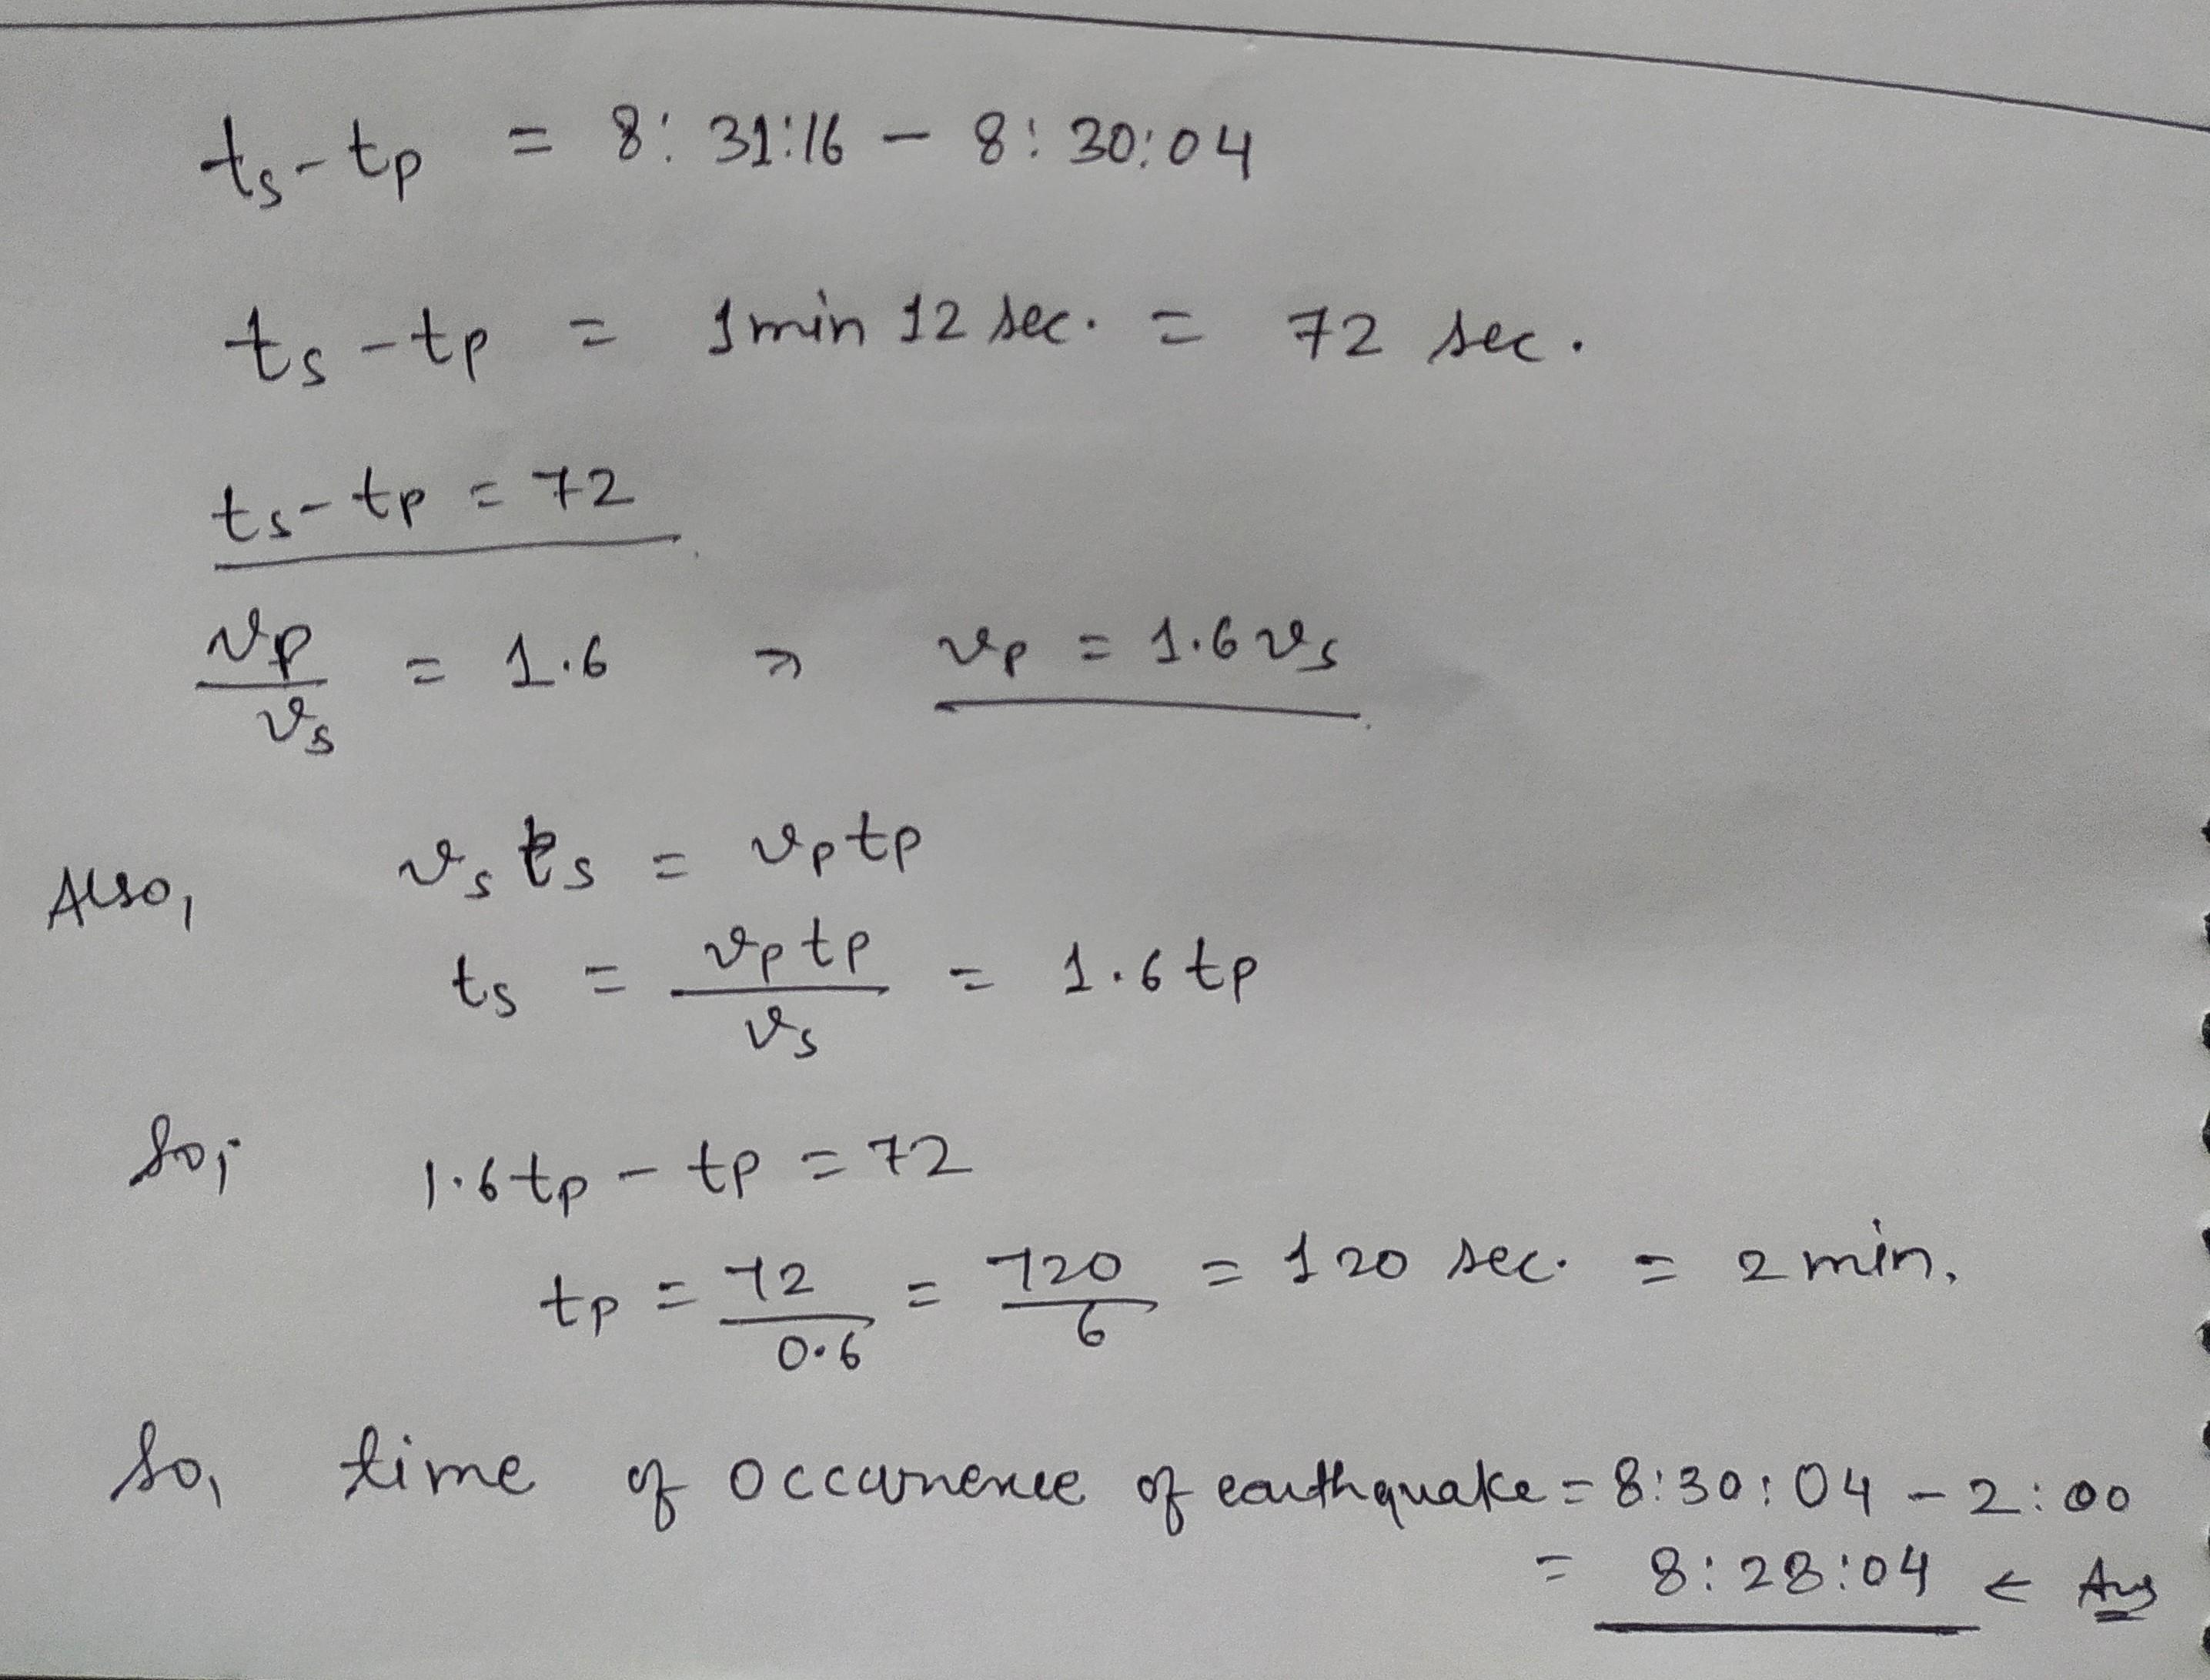 ts - tp = 8:31:16 - 8:30:04
ts - tp = 1 min 12 sec. = 72 sec.
ts - tp = 72
vp/vs = 1.6 ⇒ vp = 1.6 vs
Also, vs ts = vp tp
ts = vp tp/vs = 1.6 tp
So, 1.6 tp - tp = 72
tp = 72/0.6 = 720/6 = 120 sec. = 2 min.
So, time of occurrence of earthquake = 8:30:04 - 2:00
= 8:28:04 ← Ans